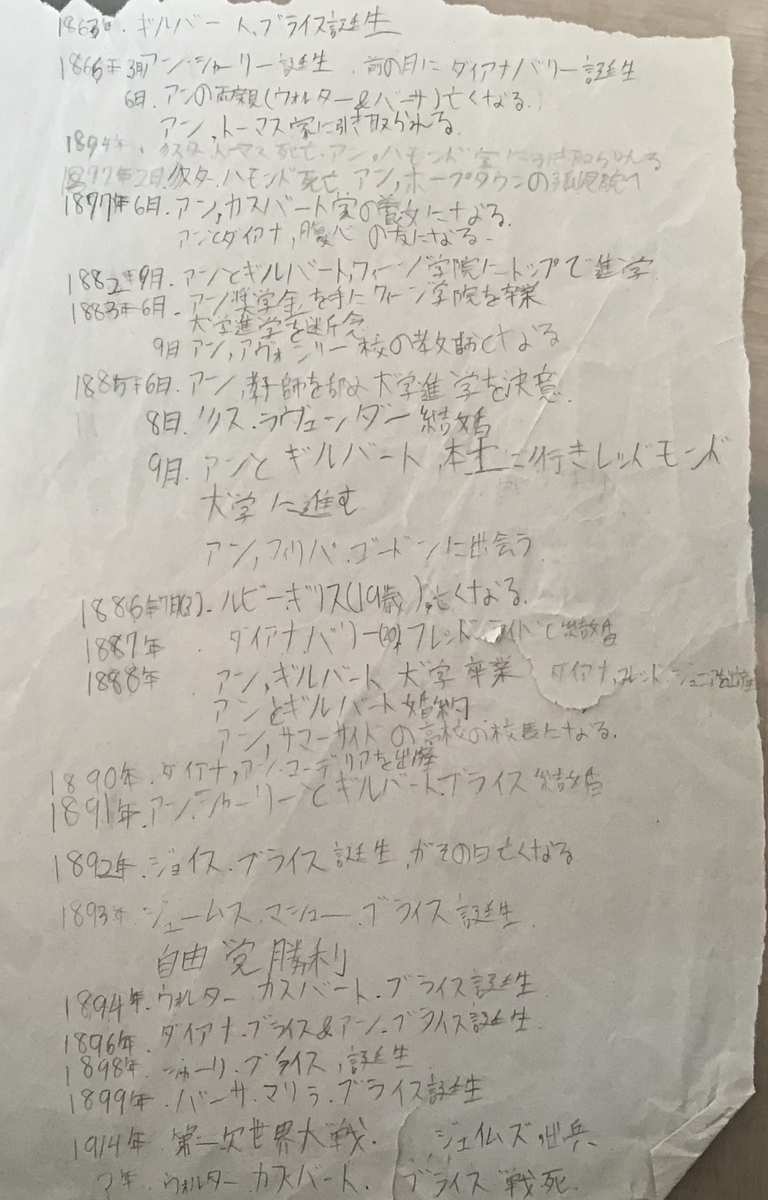 1863年.ギルバート.ブライス誕生
1866年3月アン・シャーリー誕生 .前の月にダイアナバリー誕生
6月.アンの両親(ウォルター&バーサ)亡くなる.
アン,トーマス家に引き取られる.
1894年. トーマス死亡.アン,ハモンド家に引き取られる
1897年2月 ハモンド死亡,アン,ホープタウンの孤児院へ
1877年6月.アン,カスバート家の養女になる.
アンとダイアナ,腹心の友になる-
1882年9月.アンとギルバート,クィーン学院にトップで進学
1883年6月.アン奨学金を手にクィーン学院を卒業
大学進学を断念
9月アン,アヴォンリー校の教師となる
1885年6月.アン,教師を辞め大学進学を決意.
8月.ミス.ラヴェンダー結婚
9月.アンとギルバート,本土に行きレッドモンド
大学に進む
アン,フィリパ.ゴードンに出会う
1886年7月.ルビー.ギリス(19歳)亡くなる.
1887年 . ダイアナ.バリー フレッド. と結婚
1888年 . アン,ギルバート 大学卒業 ダイアナ,フレッド.ジュニアを出産
アンとギルバート婚約
アン,サマーサイドの高校の校長になる.
1890年.ダイアナ,アン.コーデリアを出産
1891年.アン.シャーリーとギルバート.ブライス結婚
1892年.ジョイス.ブライス誕生,がその日亡くなる
1893年.ジェームス.マシュー.ブライス誕生.
自由党勝利
1894年.ウォルター カスバート.ブライス誕生
1896年.ダイアナ.ブライス&アン.ブライス誕生.
1898年.シャーリ.ブライス,誕生
1899年.バーサ.マリラ.ブライス誕生
1914年 第一次世界大戦. ジェイムズ出兵.
?年.ウォルター カスバート. ブライス戦死.